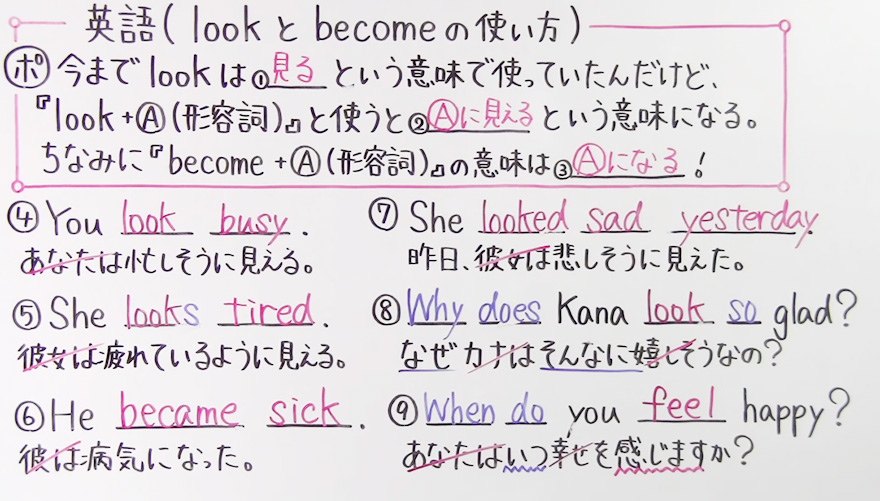 英語(lookとbecomeの使い方)
ポ 今までlookは①見るという意味で使っていたんだけど、
『look+Ⓐ(形容詞)』と使うと②Ⓐに見えるという意味になる。
ちなみに『become+Ⓐ(形容詞)』の意味は③Ⓐになる!
④You look busy.
あなたは忙しそうに見える。
⑤She looks tired.
彼女は疲れているように見える。
⑥He became sick.
彼は病気になった。
⑦She looked sad yesterday.
昨日、彼女は悲しそうに見えた。
⑧Why does Kana look so glad?
なぜカナはそんなに嬉しそうなの?
⑨When do you feel happy?
あなたはいつ幸せを感じますか?